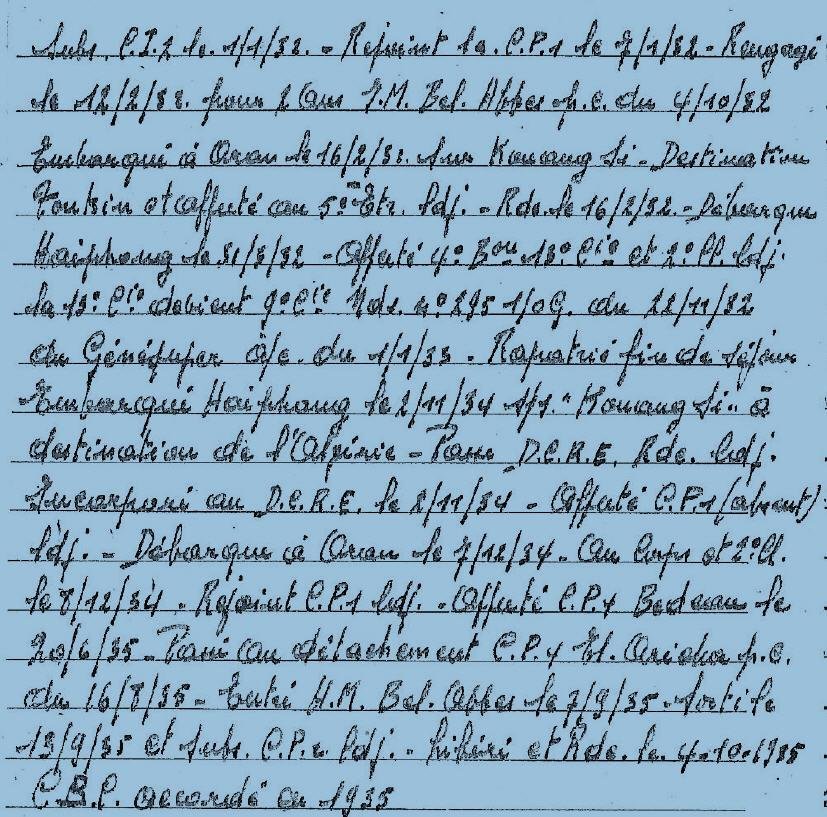 Subs. C.I.2 le 1/1/32. - Rejoint la C.P.1 le 7/1/32 - Rengagé
le 12/2/32. pour 2 ans I.M. Bel. Abbes p.c. du 4/10/32
Embarqué à Oran le 16/2/32. sur Kouang Si - Destination
Tonkin et affecté au 5e Etr. ldj. - Rde. le 16/2/32. - Débarqué
Haiphong le 31/3/32 - Affecté 4e Bon 13e Cie et 2e Cl. ldj.
la 13e Cie devient 9e Cie Nds. n° 295 1/OG. du 22/11/32
du Génésuper a/c. du 1/1/33 - Rapatrié fin de séjour
Embarqué Haiphong le 2/11/34 s/s. "Kouang Si" à
destination de l'Algérie - Passé D.C.R.E. Rde. ldj.
Incorporé au D.C.R.E. le 2/11/34 - Affecté C.P.1 (absent)
ldj. - Débarqué à Oran le 7/12/34 - Au Corps et 2e Cl.
le 8/12/34 - Rejoint C.P.1 ldj. - Affecté C.P.4 Bedeau le
20/6/35 - Passé au détachement C.P.4 El. Aricha p.c.
du 16/8/35 - Entré H.M. Bel. Abbes le 7/9/35 - Sorti le
13/9/35 et Subs. C.P.2 ldj. - Libéré et Rde. le 4-10-1935
C.B.C. accordé en 1935